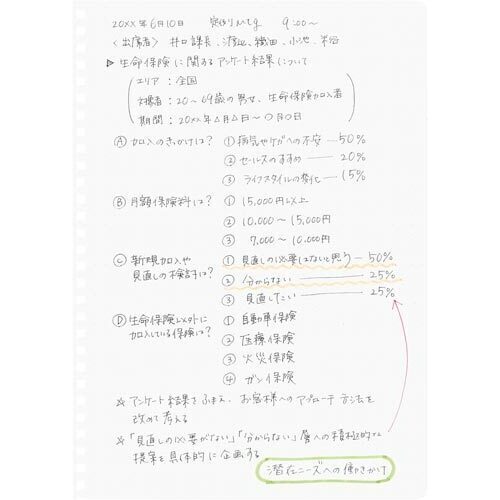 20XX年6月10日 定例Mtg 9:00〜
〈出席者〉 井口課長、渡辺、織田、小池、半谷
▷ 生命保険に関するアンケート結果について
エリア:全国
対象者:20〜69歳の男女、生命保険加入者
期間:20XX年△月△日〜〇月〇日
Ⓐ 加入のきっかけは? ① 病気やケガへの不安 — 50%
② セールスのすすめ — 20%
③ ライフスタイルの変化 — 15%
Ⓑ 月額保険料は? ① 15,000円以上
② 10,000〜15,000円
③ 7,000〜10,000円
Ⓒ 新規加入や ① 見直しの必要はないと思う — 50%
見直しの検討は? ② 分からない — 25%
③ 見直したい — 25%
Ⓓ 生命保険以外に ① 自動車保険
加入している保険は? ② 医療保険
③ 火災保険
④ ガン保険
☆ アンケート結果をふまえ、お客様へのアプローチ方法を
改めて考える
☆「見直しの必要がない」「分からない」層への積極的な
提案を具体的に企画する
潜在ニーズへの働きかけ